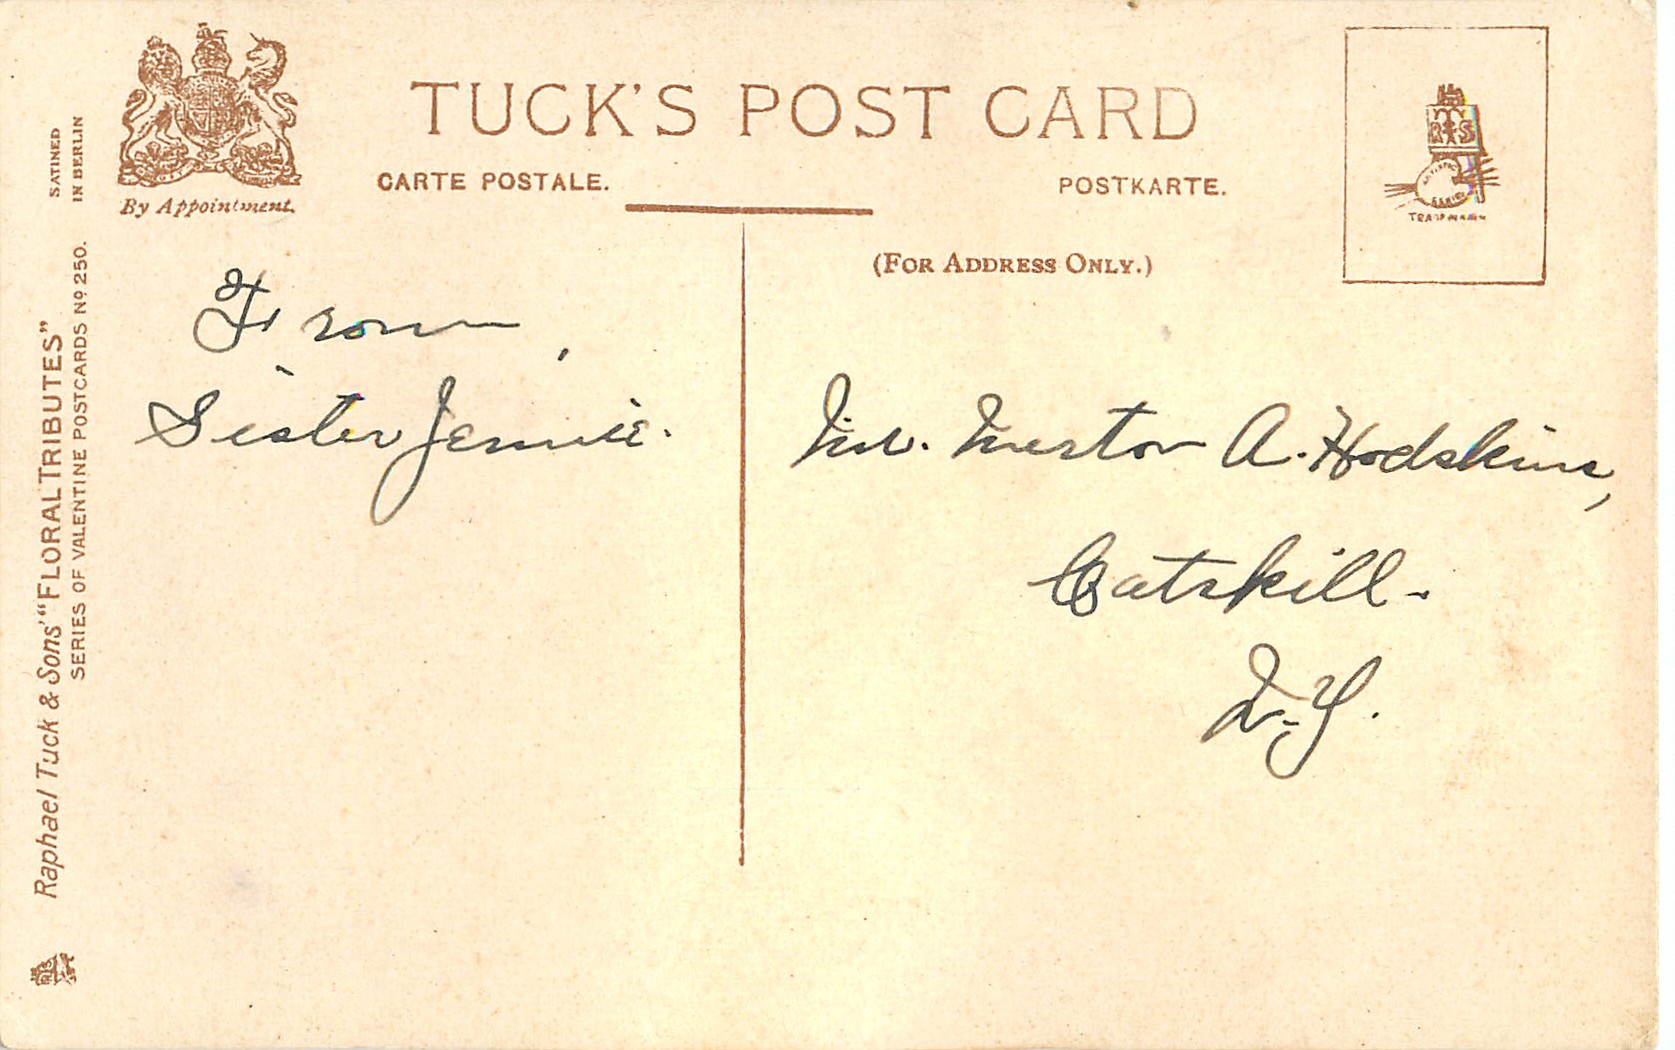 TUCK'S POST CARD
CARTE POSTALE.
POSTKARTE.
By Appointment.
(FOR ADDRESS ONLY.)
SATINED
IN BERLIN
Raphael Tuck & Sons' "FLORAL TRIBUTES"
SERIES OF VALENTINE POSTCARDS Nº 250.
From,
Sister Jennie.
Mr. Merton A. Hodskins,
Catskill.
N.Y.